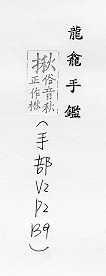 龍龕手鑑
揪俗音秋正作楸
(手部V2P2B9)